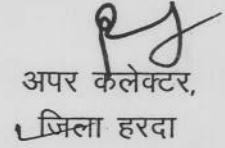 अपर कलेक्टर,
जिला हरदा